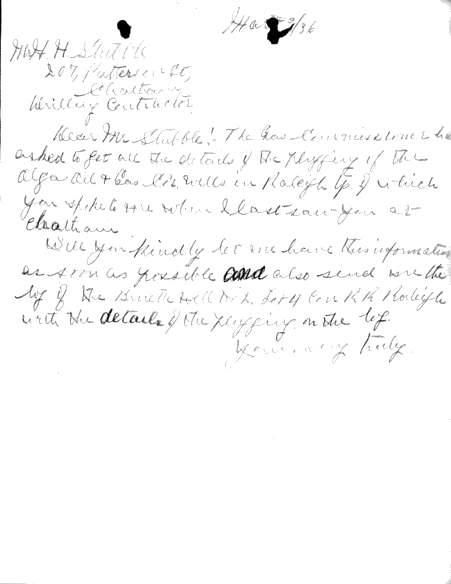 Mar 9/36
Mr H. H Stubble
207, Patterson St,
Chatham
Drilling Contractor
Dear Mr Stubble! The Gas Commissioner has
asked to get all the details of the plugging of the
Alga Oil & Gas Co's, wells in Raleigh Tp. of which
you spoke to me when I last saw you at
Chatham.
Will you kindly let me have this information
as soon as possible and also send me the
log of the well No 2. Lot 4 Con Raleigh
with the details of the plugging on the log.
Yours very truly.